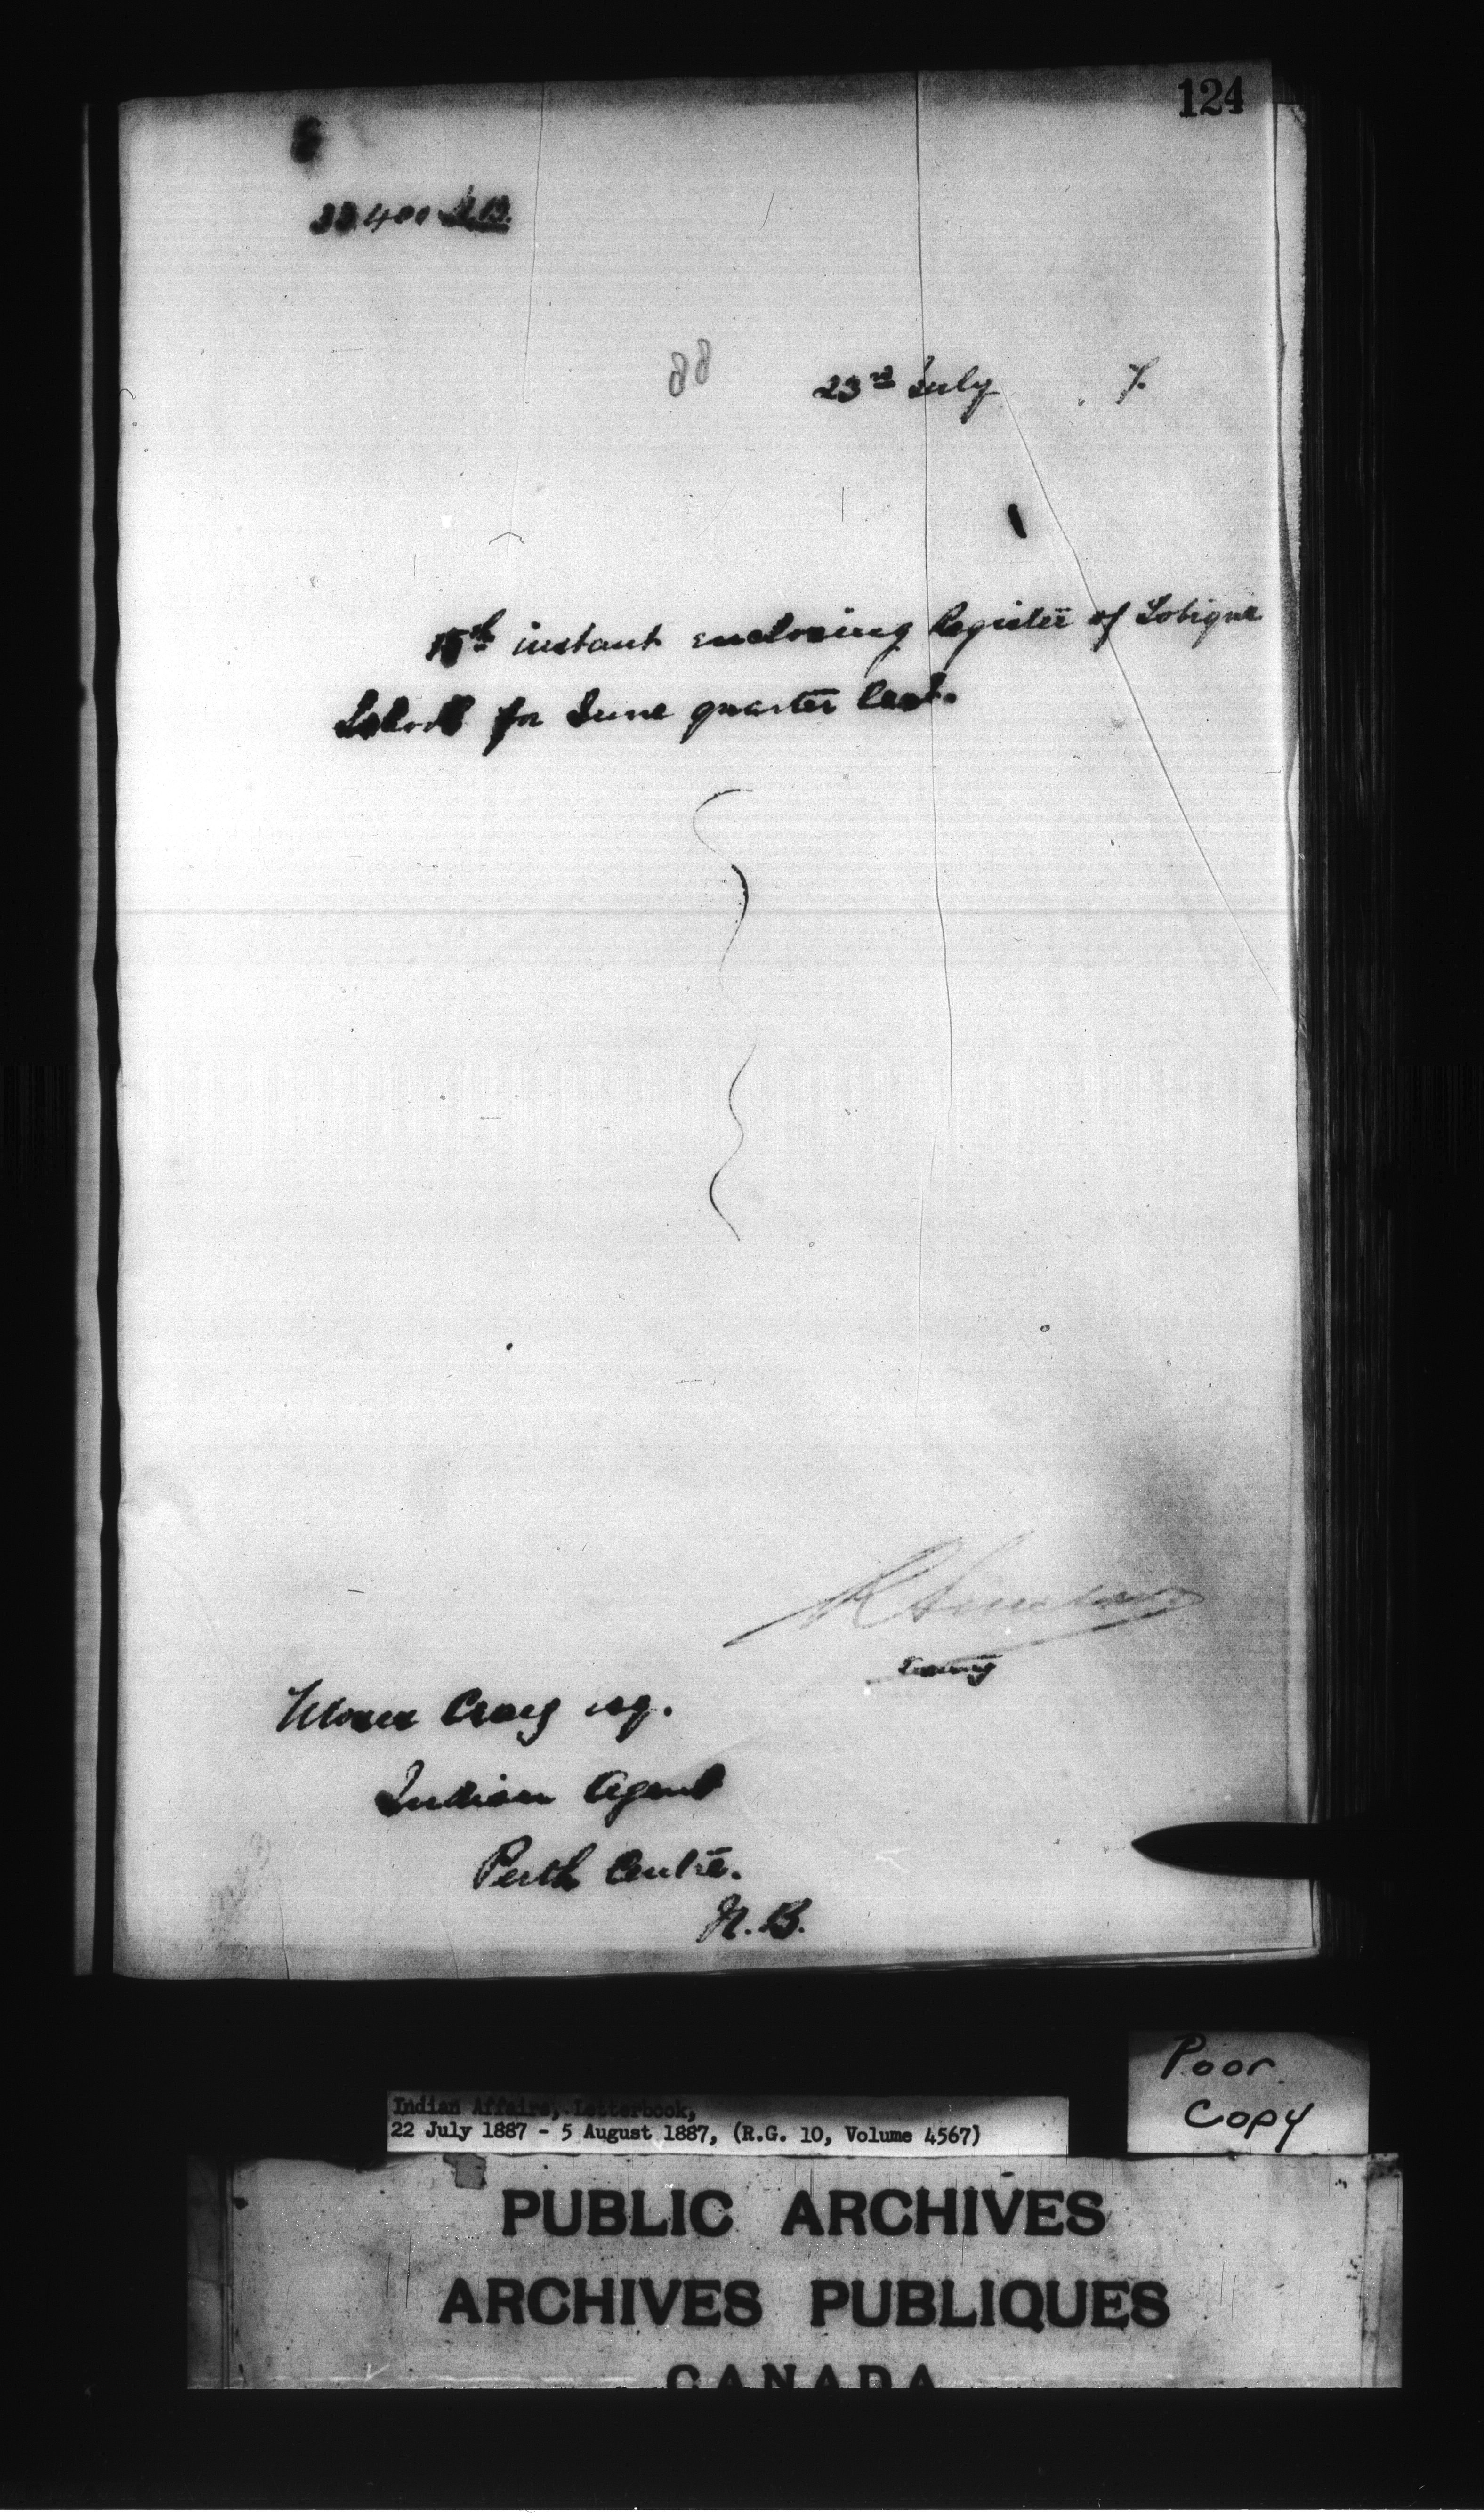 124
33.400
88
23rd July 7.
15th instant enclosing Register of Tobique
School for June quarter last.
Moses Craig esq.
Indian Agent
Perth Centre.
N.B.
Poor
Copy
Indian Affairs, Letterbook,
22 July 1887 - 5 August 1887, (R.G. 10, Volume 4567)
PUBLIC ARCHIVES
ARCHIVES PUBLIQUES
CANADA